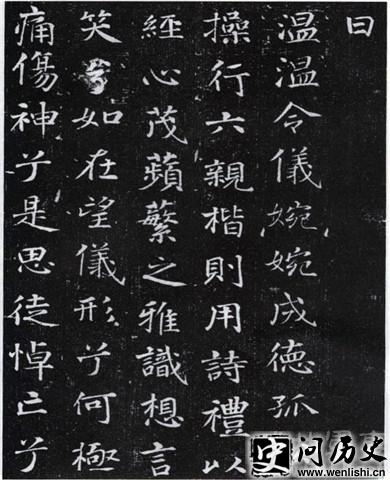 曰
温温令儀婉婉成德孤
操行六親楷則用詩禮以
經心茂蘋蘩之雅識想言
笑兮如在望儀形兮何極
痛傷神兮是思徒悼亡兮
史问历史
www.wenlishi.cn